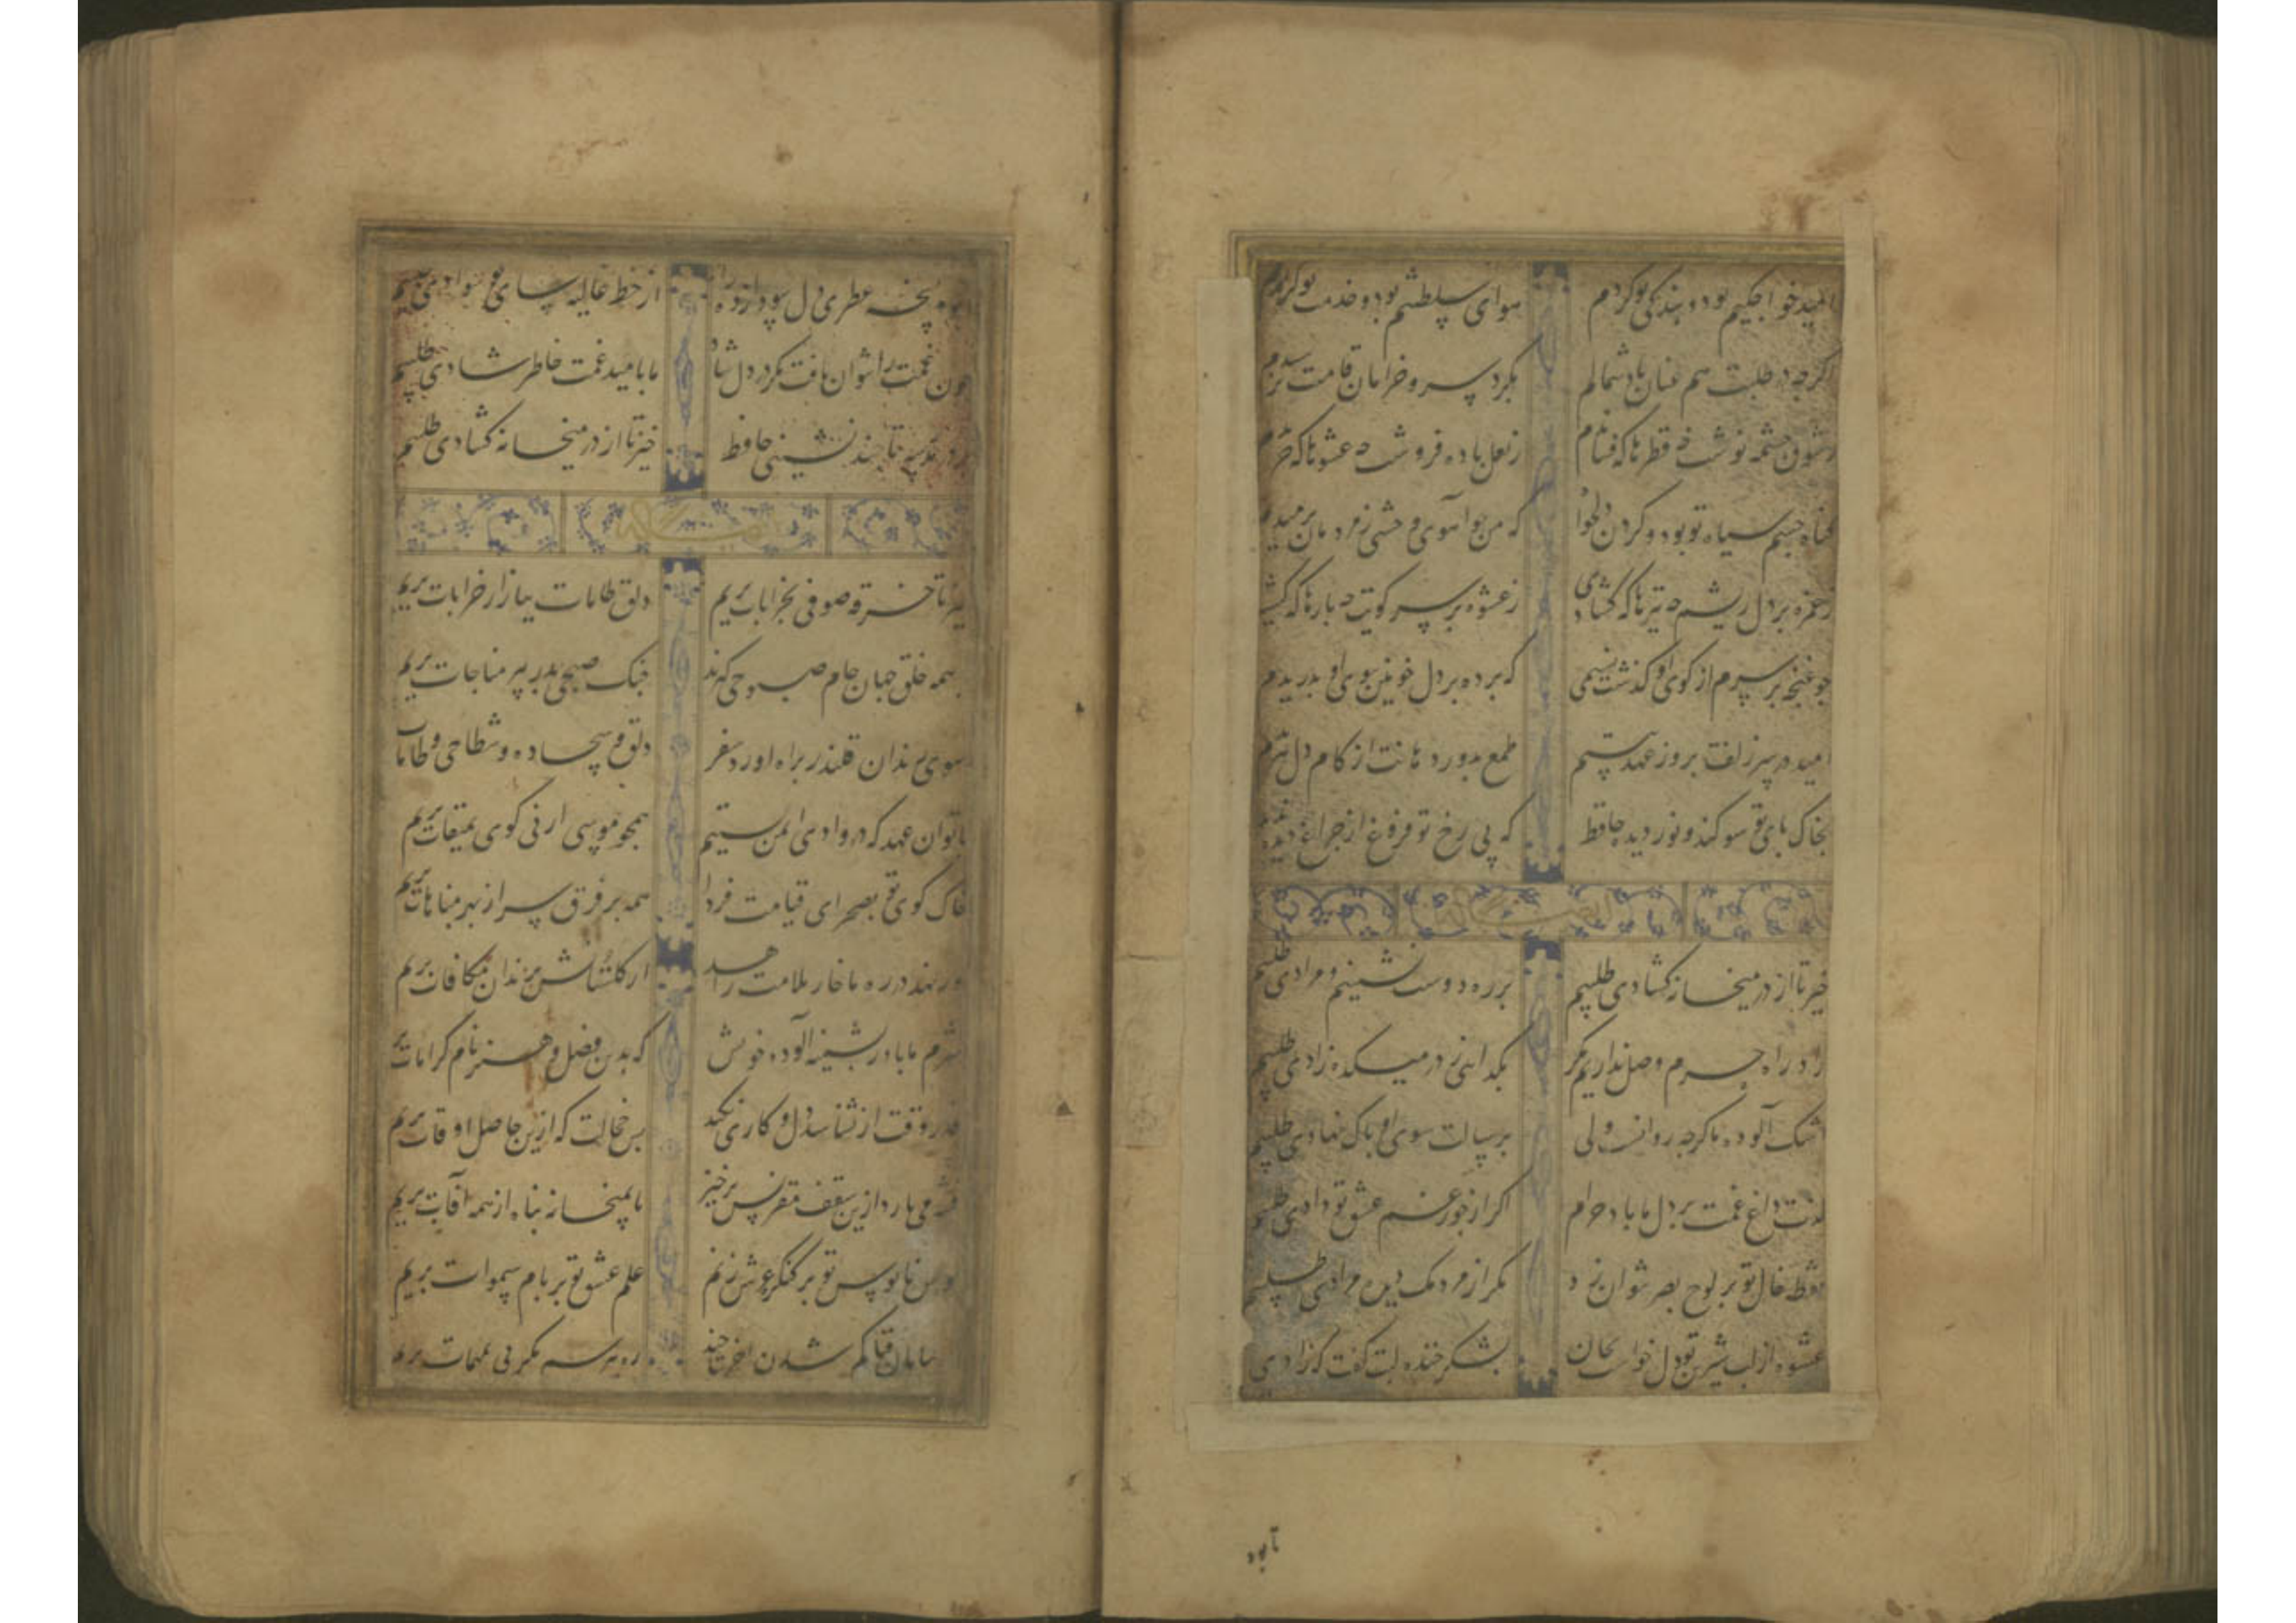 امید خواجکیم بود و بندکی تو کردم هوای سلطنتم بود و خدمت تو کزیدم
اکرچه در طلبت هم عنان باد شمالم بکرد سرو خرامان قامتت نرسیدم
ز شوق چشمه نوشت چه قطرها که فشاندم ز لعل باده فروشت چه عشوها که خریدم
کناه چشم سیاه تو بود و کردن دلخواه که من چو آهوی وحشی ز مردمان برمیدم
ز غمزه بر دل ریشم چه تیرها که کشادی ز غصه بر سر کویت چه بارها که کشیدم
چو غنچه بر سرم از کوی او کذشت نسیمی که پرده بر دل خونین ببوی او بدریدم
امید در سر زلفت بروز عهد ببستم طمع بدور دهانت از کام دل ببریدم
بخاک پای تو سوکند و نور دیده حافظ که بی رخ تو فروغ از چراغ دیده ندیدم
خیز تا از در میخانه کشادی طلبیم بر ره دوست نشینیم و مرادی طلبیم
زاد راه حرم وصل نداریم مکر بکدائی ز در میکده زادی طلبیم
اشک آلوده ما کرچه روانست ولی برسالت سوی او پاک نهادی طلبیم
لذت داغ غمت بر دل ما باد حرام اکر از جور غم عشق تو دادی طلبیم
نقطه خال تو بر لوح بصر نتوان زد مکر از مردمک دیده مرادی طلبیم
عشوه از لب شیرین تو دل خواست بجان بشکر خنده لبت کفت که زادی
تا بود
تا بود نسخه عطری دل سودازده را از خط غالیه سای تو سوادی طلبیم
چون غمت را نتوان یافت مکر در دل شاد ما بامید غمت خاطر شادی طلبیم
بر در مدرسه تا چند نشینی حافظ خیز تا از در میخانه کشادی طلبیم
خیز تا خرقه صوفی بخرابات بریم دلق طامات ببازار خرابات بریم
همه خلق جهان جام صبوحی کیرند چنک صبحی بدر پیر مناجات بریم
سوی رندان قلندر براه آورد سفر دلق و سجاده و شطاحی و طامات
با تو آن عهد که در وادی ایمن بستیم همچو موسی ارنی کوی بمیقات بریم
خاک کوی تو بصحرای قیامت فردا همه بر فرق سر از بهر مباهات بریم
ور نهد در ره ما خار ملامت زاهد از کلستانش بزندان مکافات بریم
شرم ما باد ز پشمینه آلوده خویش که بدین فضل و هنر نام کرامات بریم
قدر وقت ار نشناسد دل و کاری نکند بس خجالت که ازین حاصل اوقات بریم
فتنه می بارد ازین سقف مقرنس برخیز تا بمیخانه پناه از همه آفات بریم
کوس ناموس تو بر کنکره عرش زنیم علم عشق تو بر بام سموات بریم
در بیابان فنا کم شدن آخر تا چند ره بپرسیم مکر پی بمهمات بریم